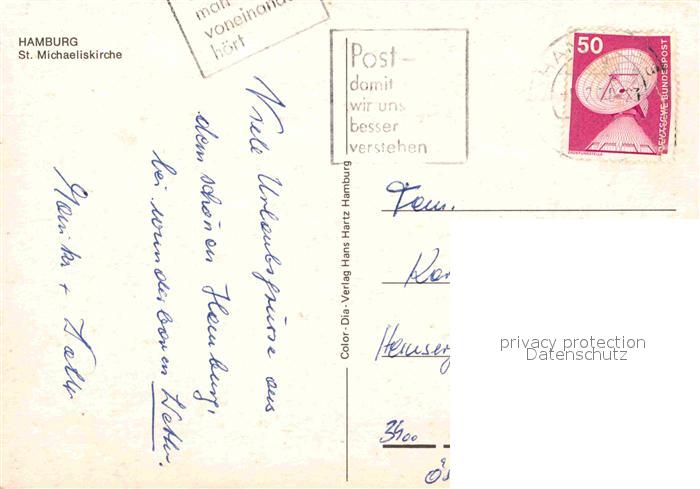 HAMBURG
St. Michaeliskirche
man
voneinande
hört
Post-
damit
wir uns
besser
verstehen
50
DEUTSCHE BUNDESPOST
Viele Urlaubsgrüsse aus
dem schönen Hamburg,
bei wunderbaren Wetter.
Color-Dia-Verlag Hans Hartz Hamburg
Fam.
privacy protection
Datenschutz